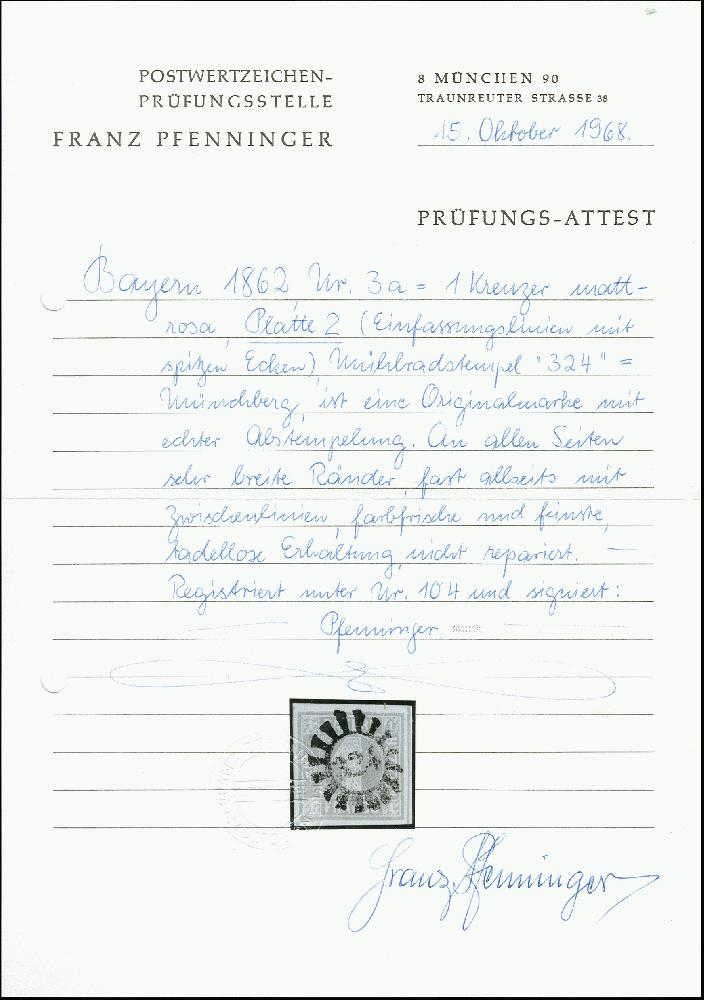 POSTWERTZEICHEN-
PRÜFUNGSSTELLE
FRANZ PFENNINGER
8 MÜNCHEN 90
TRAUNREUTER STRASSE 38
15. Oktober 1968.
PRÜFUNGS-ATTEST
Bayern 1862, Nr. 3a = 1 Kreuzer matt-
rosa, Platte 2 (Einfassungslinien mit
spitzen Ecken), Mühlradstempel "324" =
Münchberg, ist eine Originalmarke mit
echter Abstempelung. An allen Seiten
sehr breite Ränder, fast allseits mit
Zwischenlinien, farbfrische und feinste,
tadellose Erhaltung, nicht repariert. —
Registriert unter Nr. 104 und signiert:
Pfenninger
324
Franz Pfenninger